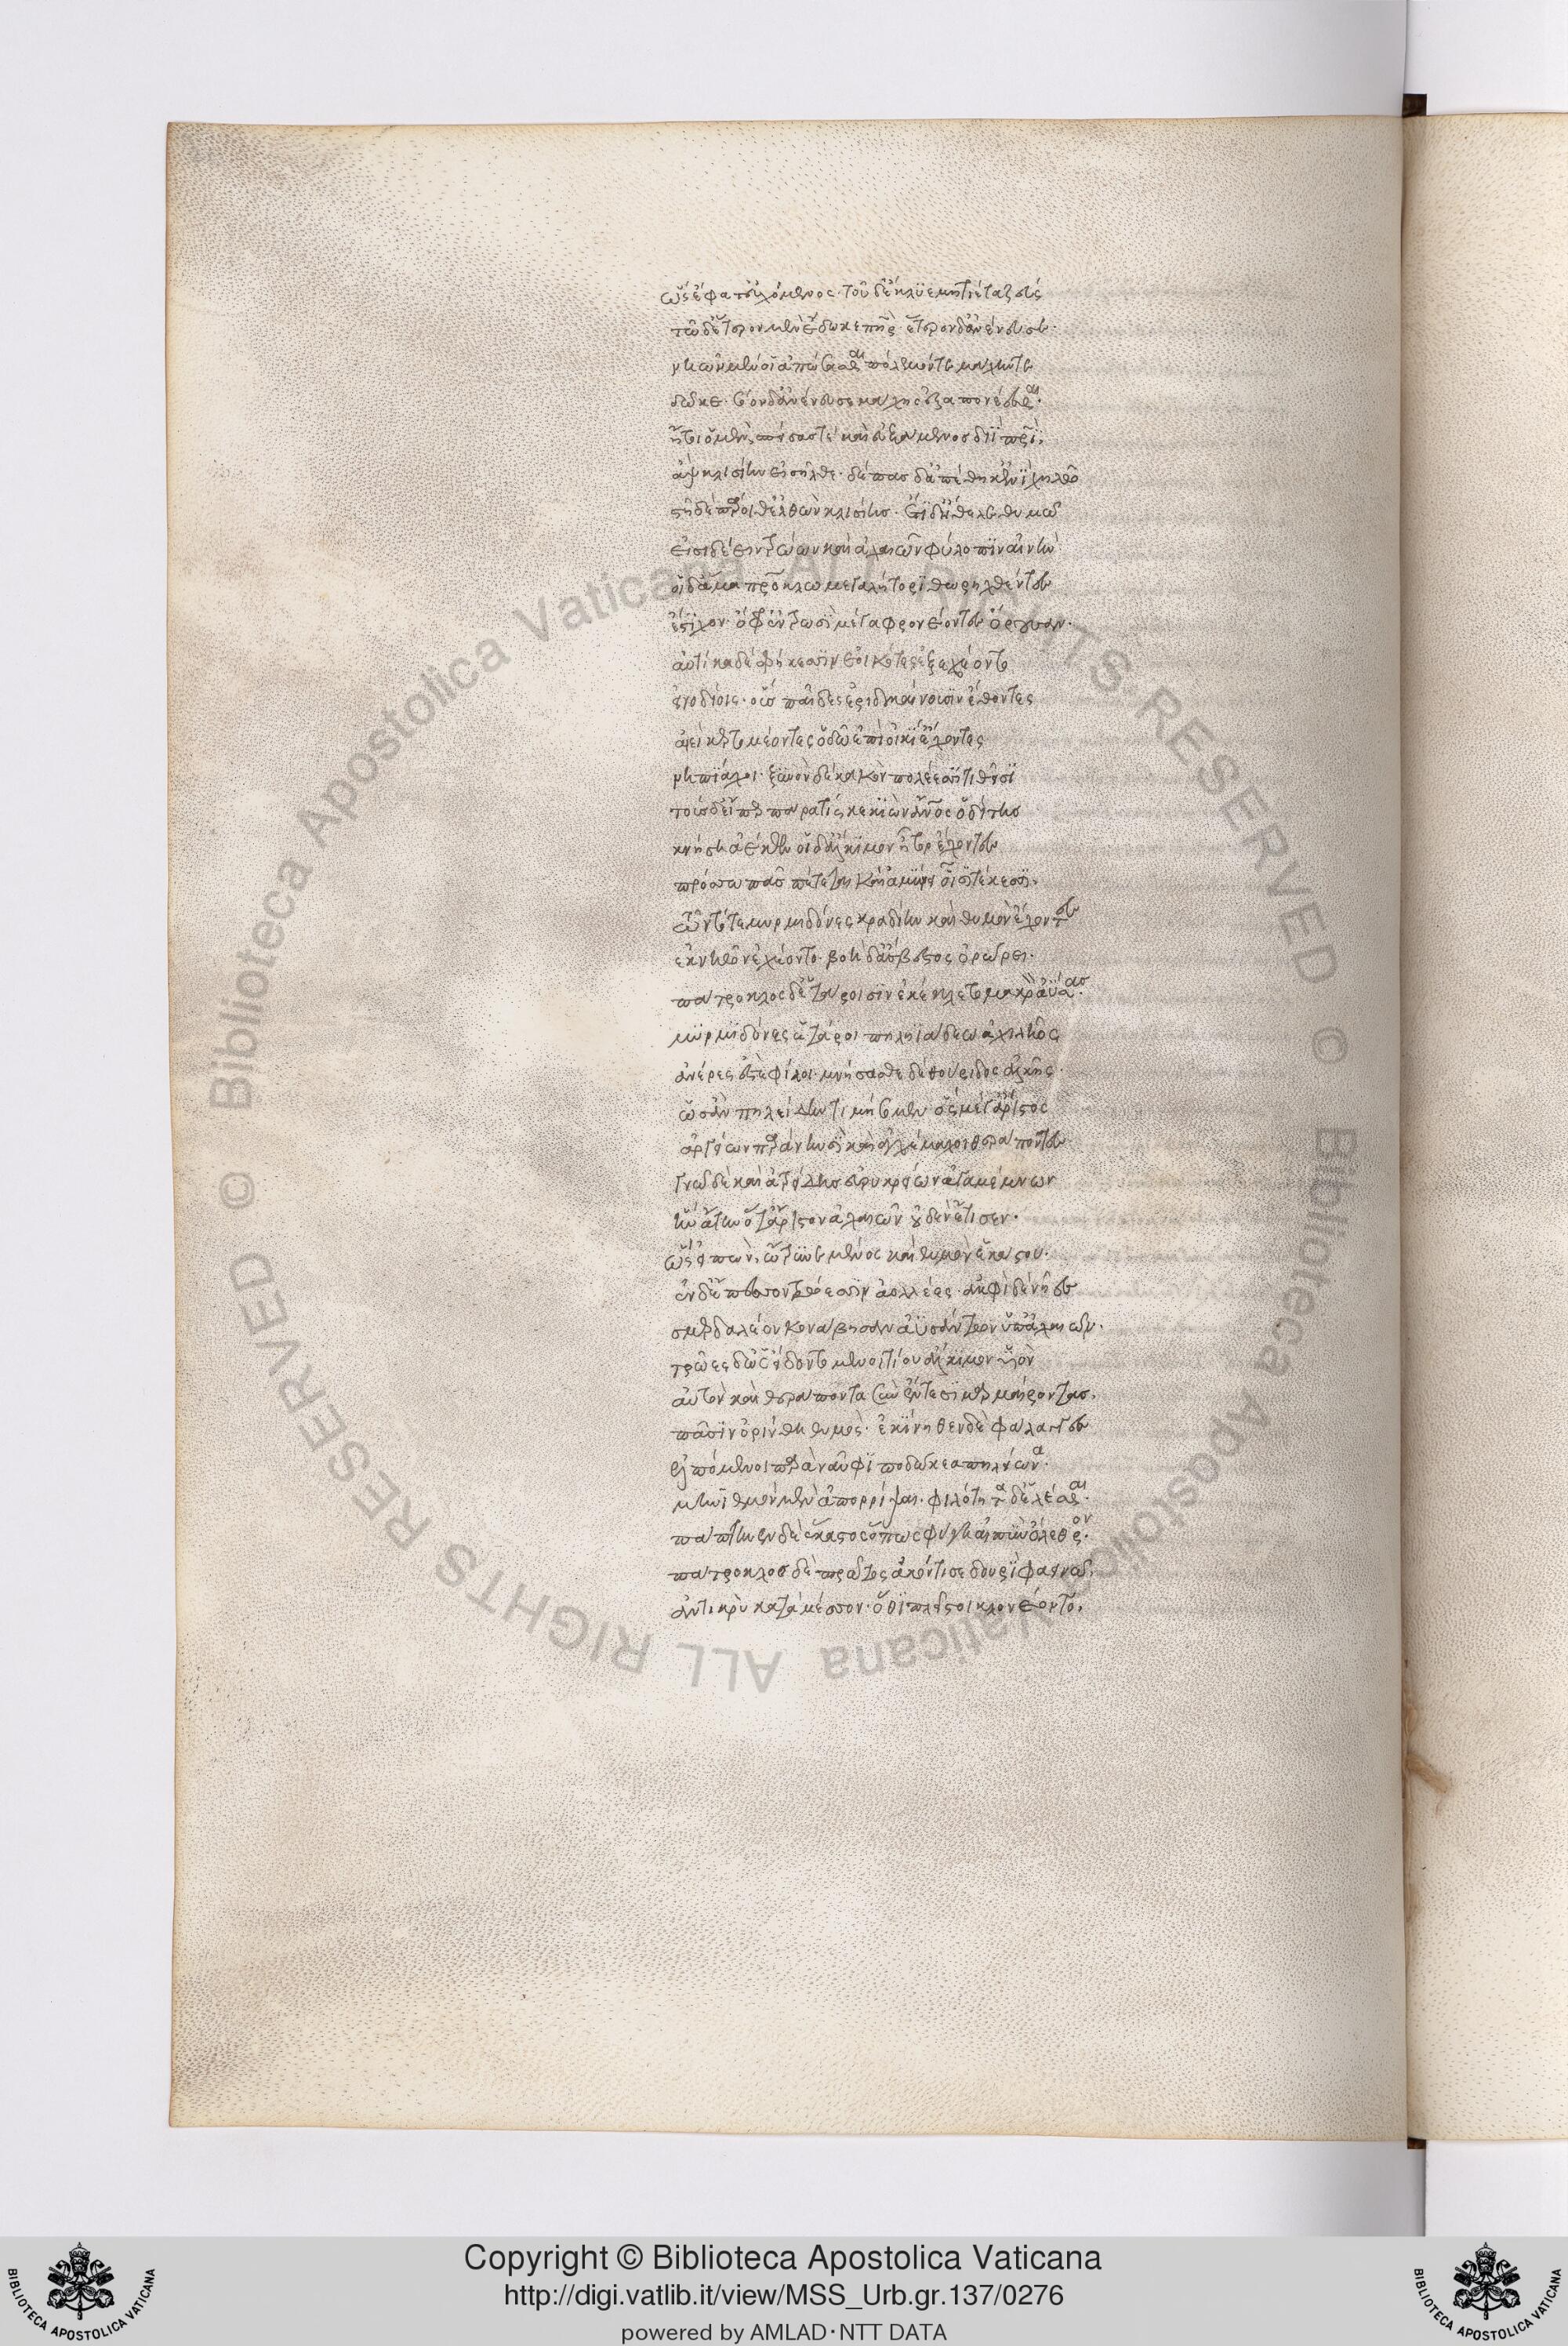 ὣς ἔφατ' εὐχόμενος· τοῦ δ' ἔκλυε μητίετα ζεύς
τῷ δ' ἕτερον μὲν ἔδωκε πατὴρ· ἕτερον δ' ἀνένευσεν·
νηῶν μὲν οἱ ἀπώσασθαι πόλεμόν τε μάχην τε
δῶκε· σόον δ' ἀνένευσε μάχης ἐξαπονέεσθαι·
ἤτοι ὁ μὲν σπείσας τε καὶ εὐξάμενος διῒ πατρὶ,
ἂψ κλισίην εἰσῆλθε· δέπας δ' ἀπέθηκ' ἐνὶ χηλῷ
στῆ δὲ πάροιθ' ἐλθὼν κλισίης· ἔτι δ' ἤθελε θυμῷ
εἰσιδέειν τρώων καὶ ἀχαιῶν φύλοπιν αἰνὴν
οἱ δ' ἅμα πατρόκλῳ μεγαλήτορι θωρηχθέντες
ἔστιχον· ὄφρ' ἐν τρωσὶ μέγα φρονέοντες ὄρουσαν·
αὐτίκα δὲ σφήκεσσιν ἐοικότες ἐξεχέοντο
εἰνοδίοις· οὓς παῖδες ἐριδμαίνουσιν ἔθοντες
αἰεὶ κερτομέοντες ὁδῷ ἔπι οἰκί' ἔχοντας
νηπίαχοι· ξυνὸν δὲ κακὸν πολέεσσι τιθεῖσι
τοὺς δ' εἴπερ παρὰ τίς τε κιὼν ἄνθρωπος ὁδίτης
κινήσῃ ἀέκων οἱ δ' ἄλκιμον ἦτορ ἔχοντες
πρόσσω πᾶς πέτεται καὶ ἀμύνει οἷσι τέκεσσι·
τῶν τότε μυρμιδόνες κραδίην καὶ θυμὸν ἔχοντες
ἐκ νηῶν ἐχέοντο· βοὴ δ' ἄσβεστος ὀρώρει·
πάτροκλος δ' ἑτάροισιν ἐκέκλετο μακρὸν ἀΰσας·
μυρμιδόνες ἕταροι πηληϊάδεω ἀχιλῆος
ἀνέρες ἔστε φίλοι· μνήσασθε δὲ θούριδος ἀλκῆς·
ὡς ἂν πηλείδην τιμήσομεν ὃς μέγ' ἄριστος
ἀργείων παρὰ νηυσὶ καὶ ἀγχέμαχοι θεράποντες
γνῷ δὲ καὶ ἀτρείδης εὐρυκρείων ἀγαμέμνων
ἣν ἄτην ὅτ' ἄριστον ἀχαιῶν οὐδὲν ἔτισεν·
ὣς εἰπὼν, ὤτρυνε μένος καὶ θυμὸν ἑκάστου·
ἐν δ' ἔπεσον τρώεσσιν ἀολλέες· ἀμφὶ δὲ νῆες
σμερδαλέον κονάβησαν ἀϋσάντων ὑπ' ἀχαιῶν·
τρῶες δ' ὡς εἴδοντο μενοιτίου ἄλκιμον υἱὸν
αὐτὸν καὶ θεράποντα σὺν ἔντεσι μαρμαίροντας,
πᾶσιν ὀρίνθη θυμὸς· ἐκίνηθεν δὲ φάλαγγες
ἐλπόμενοι παρὰ ναῦφι ποδώκεα πηλείωνα·
μηνιθμὸν μὲν ἀπορρίψαι· φιλότητα δ' ἑλέσθαι·
πάπτηνεν δὲ ἕκαστος ὅπως φύγῃ αἰπὺν ὄλεθρον·
πάτροκλος δὲ πρῶτος ἀκόντισε δουρὶ φαεινῷ,
ἀντικρὺ κατὰ μέσσον· ὅθι πλεῖστοι κλονέοντο,
Copyright © Biblioteca Apostolica Vaticana
http://digi.vatlib.it/view/MSS_Urb.gr.137/0276
powered by AMLAD·NTT DATA